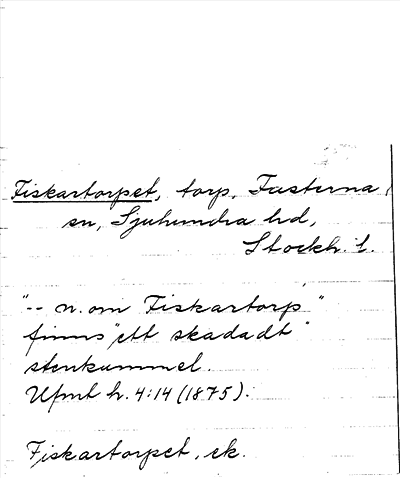 Fiskartorpet, torp, Fasterna
sn, Sjuhundra hd,
Stockh. l.
"-- n. om Fiskartorp"
finns "ett skadadt"
stenkummel.
Upml h. 4:14 (1875).
Fiskartorpet, ek.